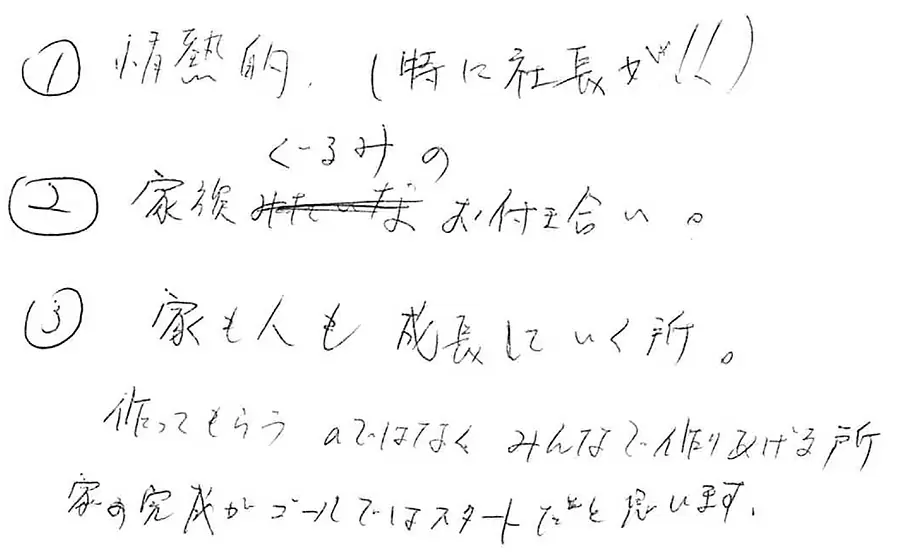 ① 情熱的. (特に社長が!!)
ぐるみの
② 家族みたいなお付き合い。
③ 家も人も成長していく所。
作ってもらうのではなく みんなで作りあげる所
家の完成がゴールではスタートだと思います.